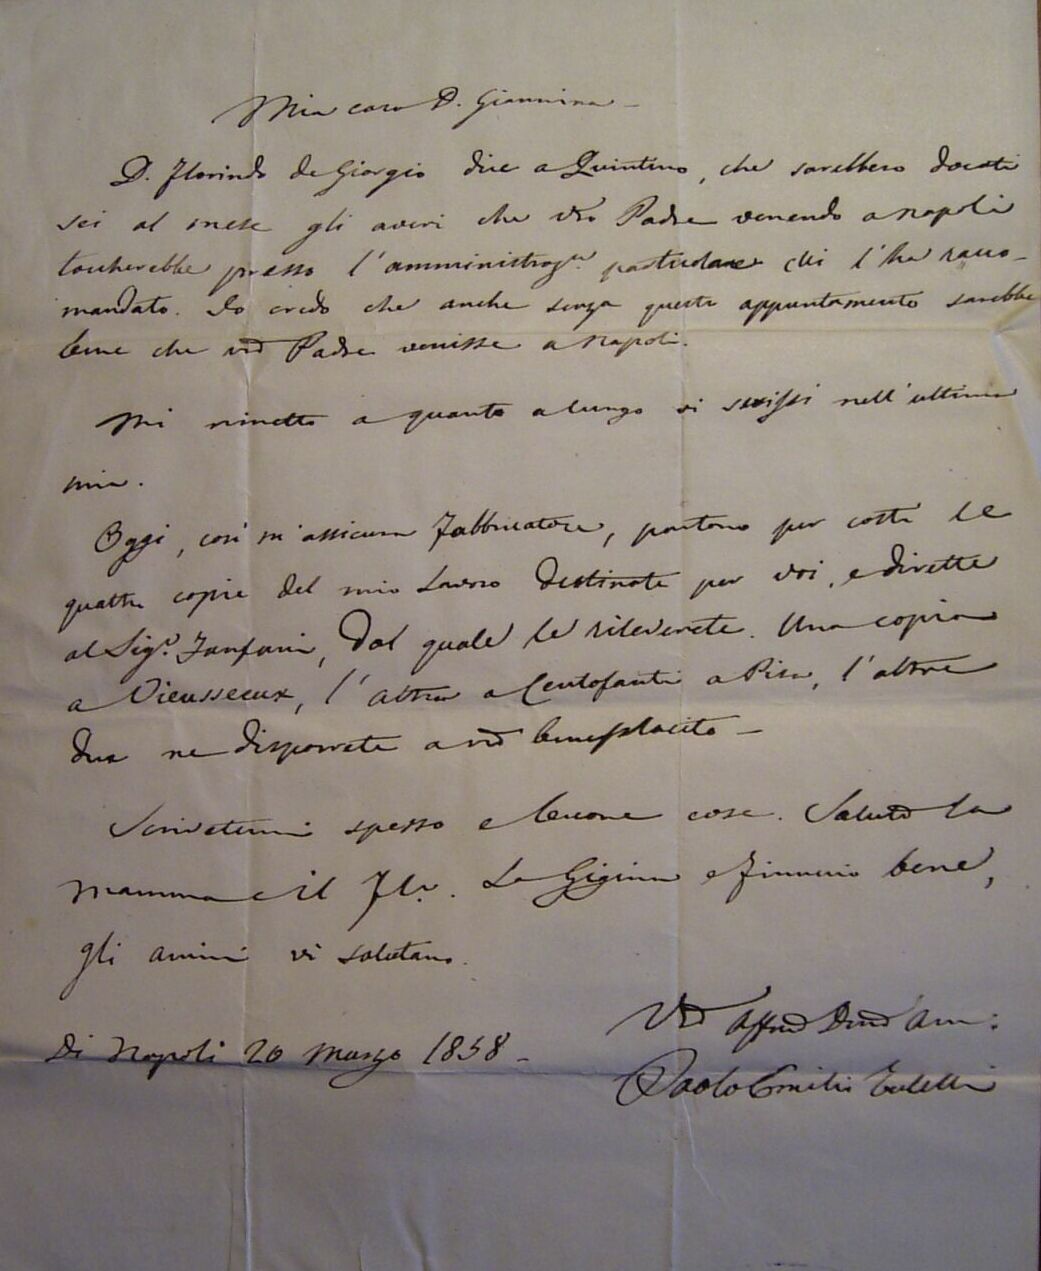 Mia cara D. Giannina –
D. Florindo de Giorgio dice a Quintino, che sarebbero docati
sei al mese gli averi che vro Padre venendo a Napoli
toccherebbe presso l'amministraz.e particolare chi l'ha racco-
mandato. Io credo che anche senza questo appuntamento sarebbe
bene che vro Padre venisse a Napoli.
Mi rimetto a quanto a lungo vi scrissi nell'ultima
mia.
Oggi, così m'assicura Fabbricatore, partono per costà le
quattro copie del mio Lavoro destinate per voi, e dirette
al Sig.r Fanfani, dal quale le riceverete. Una copia
a Vieusseux, l'altra a Centofanti a Pisa, l'altre
due ne disporrete a vro beneplacito –
Scrivetemi spesso e buone cose. Salutate la
mamma e il . La Gigina e bene,
gli amici vi salutano.
Di Napoli 20 marzo 1858 –
Vro affmo am:
Paolo Emilio Tulelli